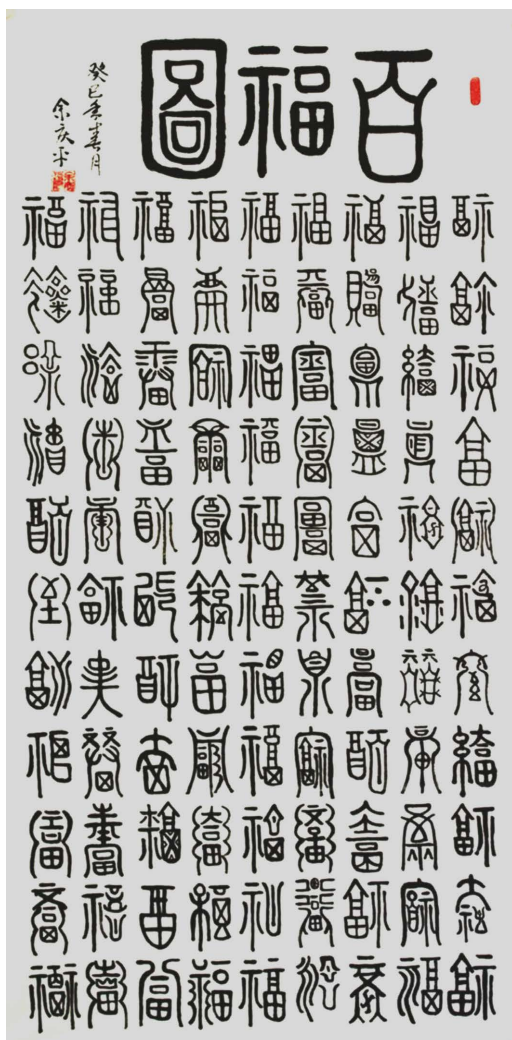 百福圖
福福福福福福福福福福福
福福福福福福福福福福福
福福福福福福福福福福福
福福福福福福福福福福福
福福福福福福福福福福福
福福福福福福福福福福福
福福福福福福福福福福福
福福福福福福福福福福福
福福福福福福福福福福福
癸巳年春月
余庆平